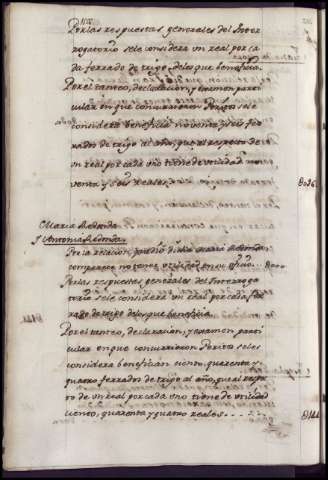 Por las respuestas generales del Interr
rogatorio sele considera un real por ca
da ferrado de trigo, delos que beneficia.
Por el tanteo, declarazion, y examen parti
cular en que concurrieron Peritos sele
considera beneficia noventa y seis fer
rados de trigo al año, que al respecto de
un real por cada uno tiene de utilidad no
venta y seis reales
Maria Redonda
y Antonia Redonda
Por la relacion que dio dicha Maria Redonda
comparece no tener utilidad en su oficio
Por las respuestas generales del Interroga
torio sele considera un real por cada fer
rado de trigo delos que beneficia
Por el tanteo, declarazion, y examen parti
cular en que concurrieron Peritos seles
considera benefician ciento, quarenta y
quatro ferrados de trigo al año, que al respe
to de un real por cada uno tiene de utilidad
ciento, quarenta y quatro reales